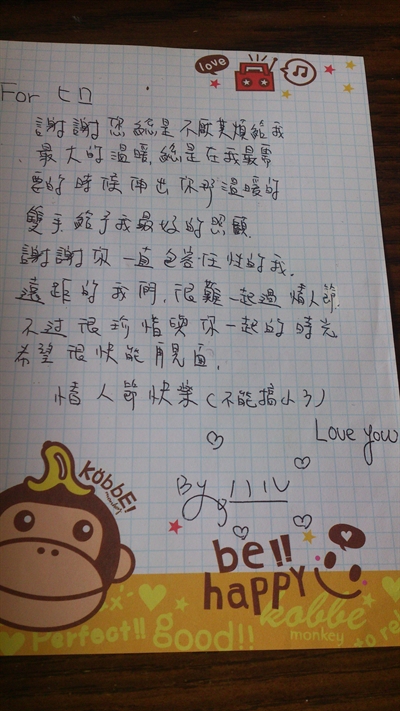 love
For ヒロ
謝謝您總是不厭其煩給我
最大的溫暖,總是在我最需
要的時候伸出你那溫暖的
雙手給予我最好的照顧.
謝謝你一直包容任性的我.
遠距的我們,很難一起過情人節.
不过很珍惜與你一起的時光
希望很快能再見面,
情人節快樂(不能搞小3)
Love you
By
kobbE!
monkey
be!!
happy
kobbe
monkey
Perfect!! good!!